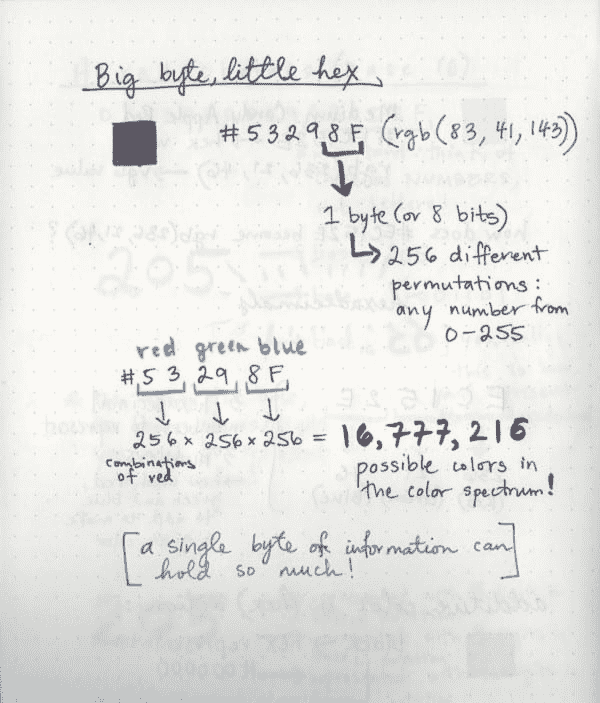 Big byte, little hex
#53298F (rgb(83, 41, 143))
1 byte (or 8 bits)
256 different
permutations:
any number from
0-255
red green blue
#53 29 8F
256 x 256 x 256 = 16,777,216
combinations
of red
possible colors in
the color spectrum!
[a single byte of information can
hold so much!]